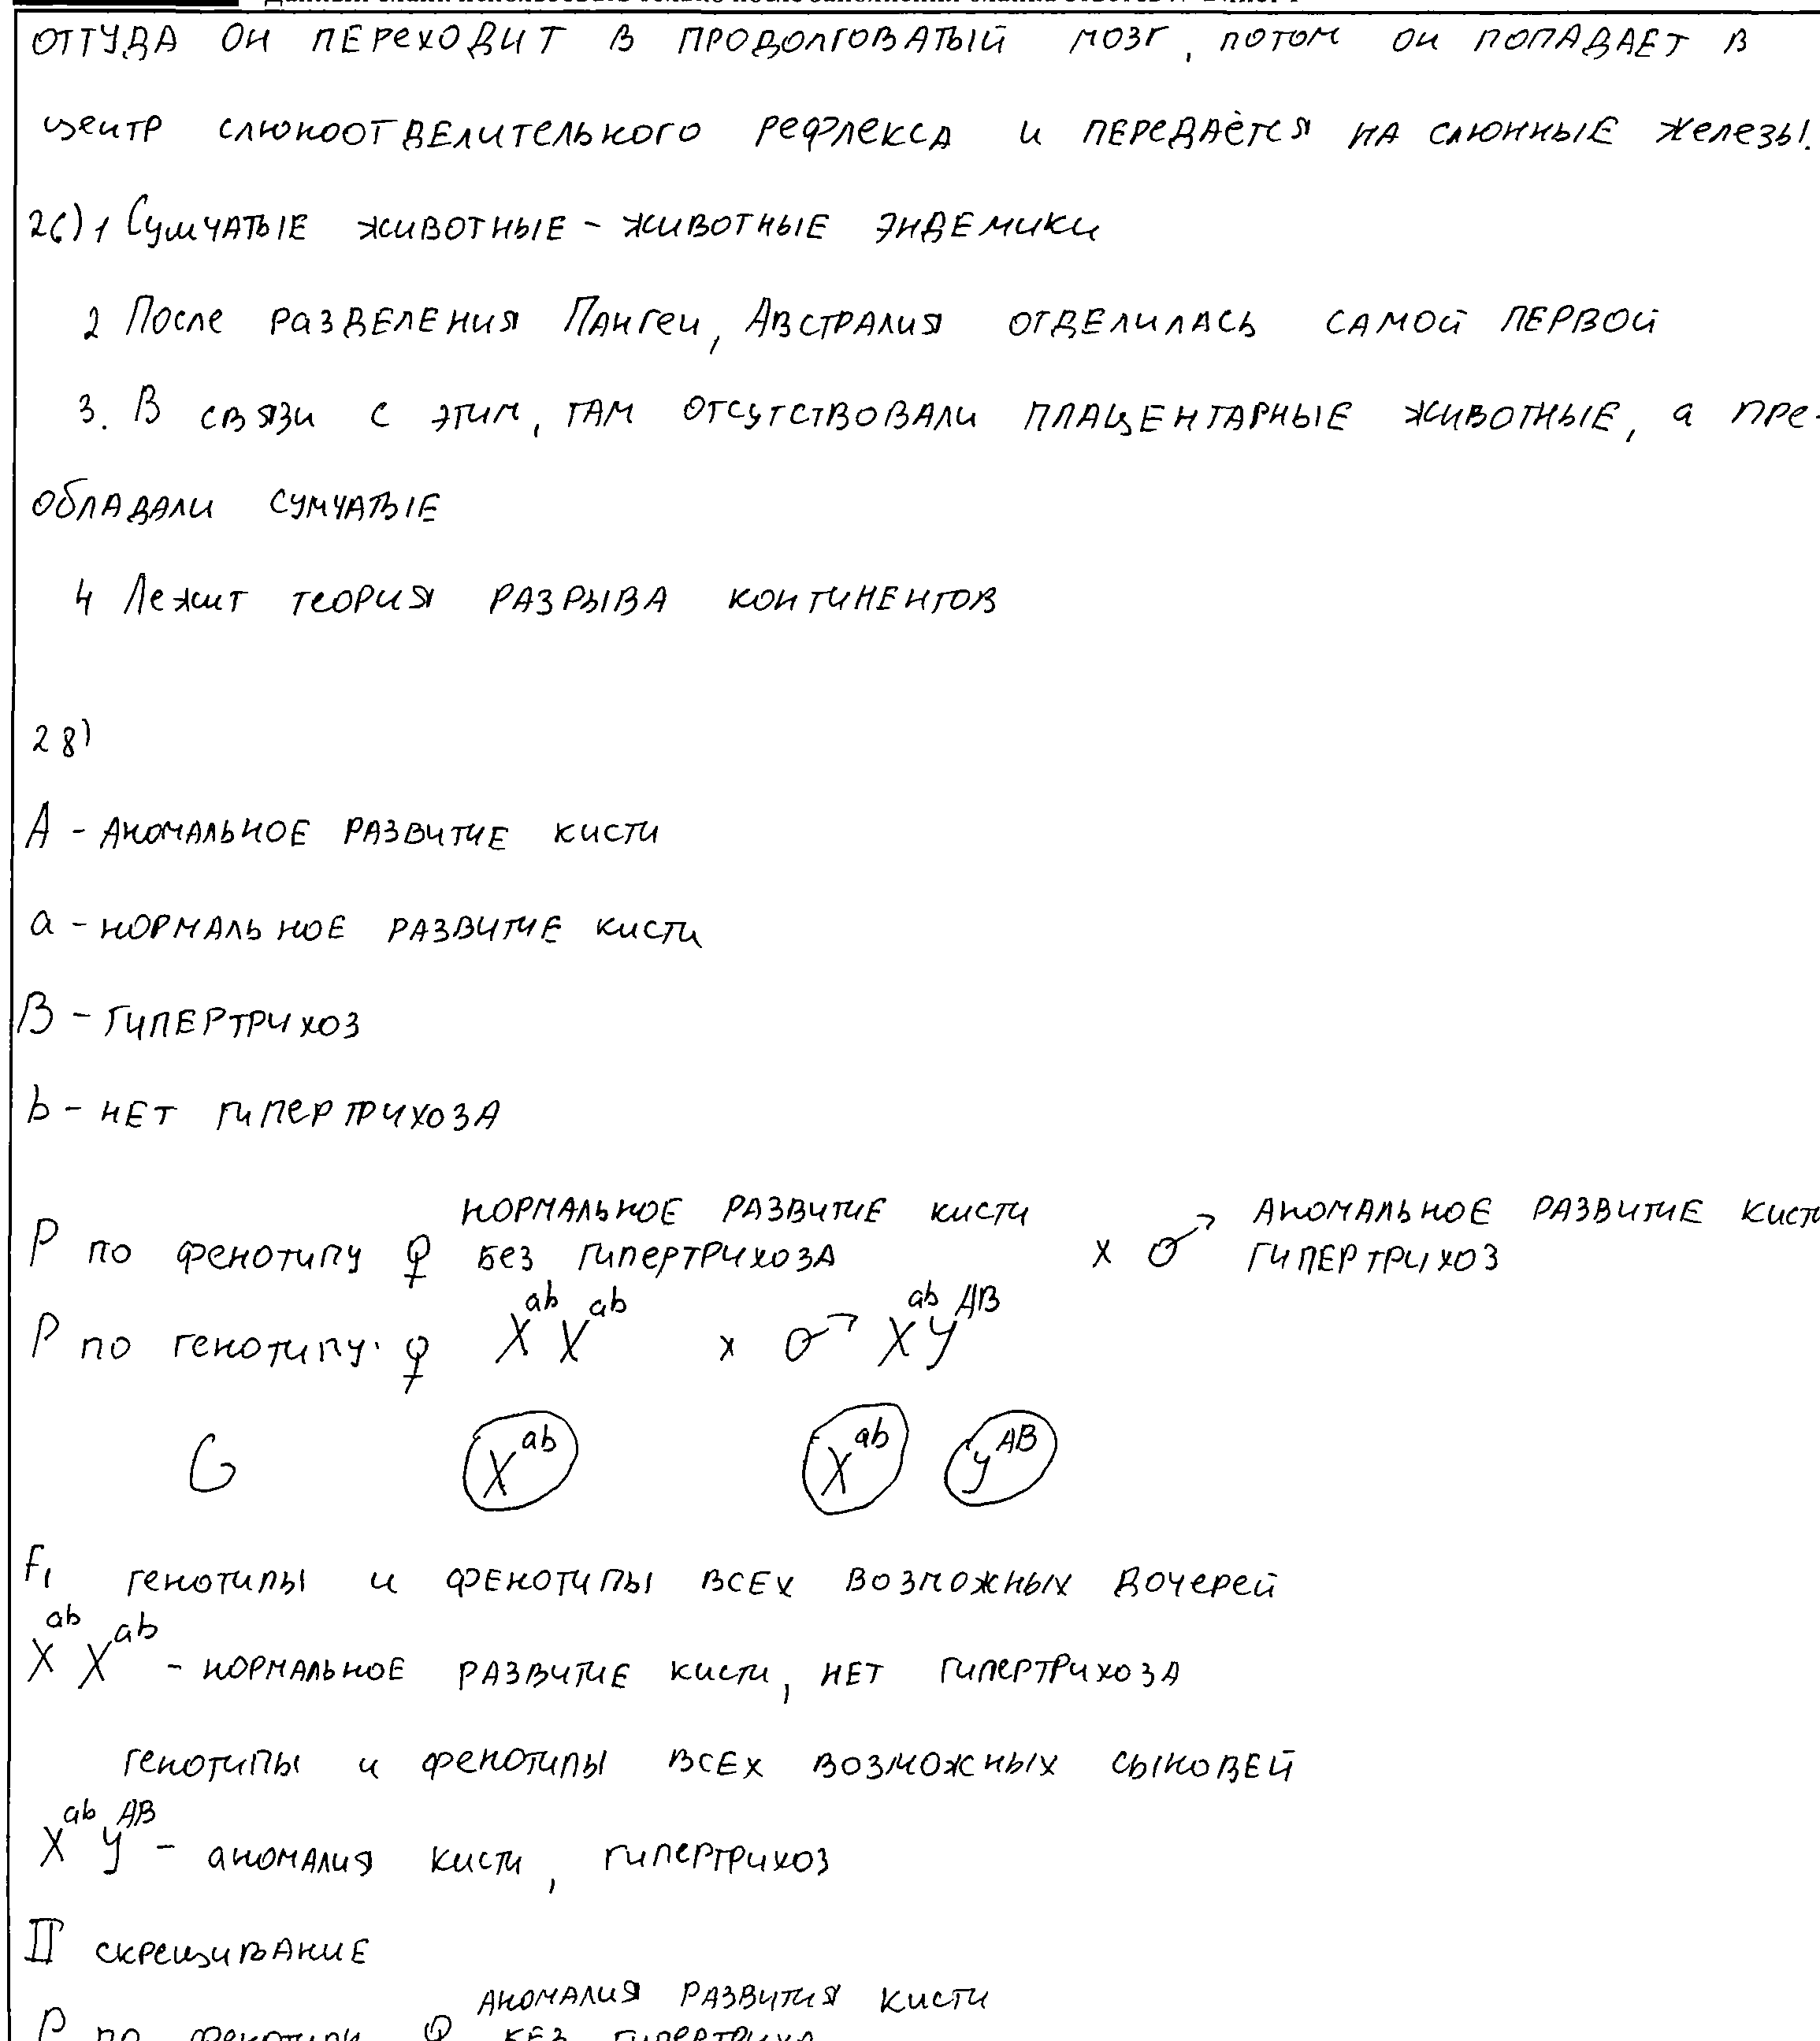 оттуда он переходит в продолговатый мозг, потом он попадает в
центр слюноотделительного рефлекса и передаётся на слюнные железы.
26) 1 Сумчатые животные - животные эндемики
2 После разделения Пангеи, Австралия отделилась самой первой
3. В связи с этим, там отсутствовали плацентарные животные, а пре-
обладали сумчатые
4 Лежит теория разрыва континентов
28)
A - аномальное развитие кисти
a - нормальное развитие кисти
B - гипертрихоз
b - нет гипертрихоза
нормальное развитие кисти аномальное развитие кисти
P по фенотипу ♀ без гипертрихоза x ♂ гипертрихоз
P по генотипу: ♀ X^ab X^ab x ♂ X^ab Y^AB
G X^ab X^ab Y^AB
F₁ генотипы и фенотипы всех возможных дочерей
X^ab X^ab - нормальное развитие кисти, нет гипертрихоза
генотипы и фенотипы всех возможных сыновей
X^ab Y^AB - аномалия кисти, гипертрихоз
II скрещивание
аномалия развития кисти
P по фенотипу ♀ без гипертриха